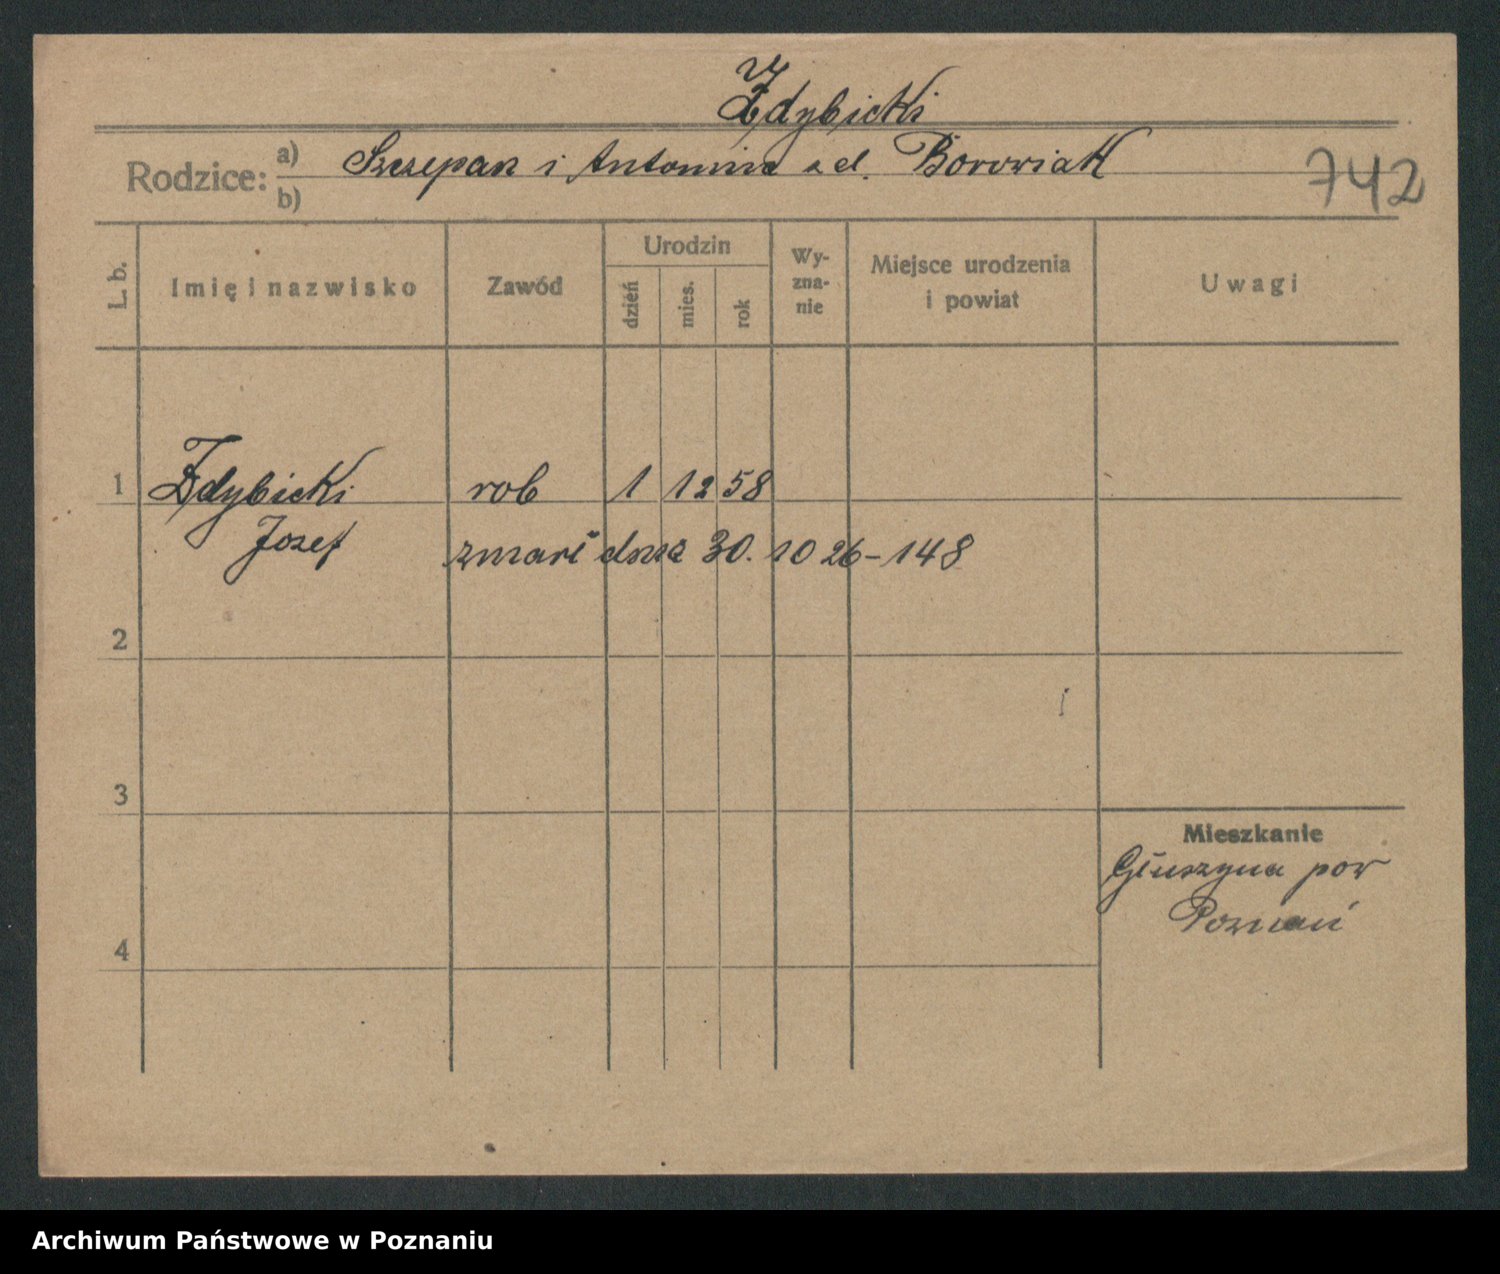 Zdybicki
Rodzice: a) Szczepan i Antonina z d. Borowiak
b)
742
L. b. Imię i nazwisko Zawód Urodzin dzień mies. rok Wy-zna-nie Miejsce urodzenia i powiat Uwagi
1 Zdybicki rob 1 12 58
Jozef zmarł dnia 30. 10 26 - 148
2
3
Mieszkanie
Głuszyna pow
Poznań
4
Archiwum Państwowe w Poznaniu